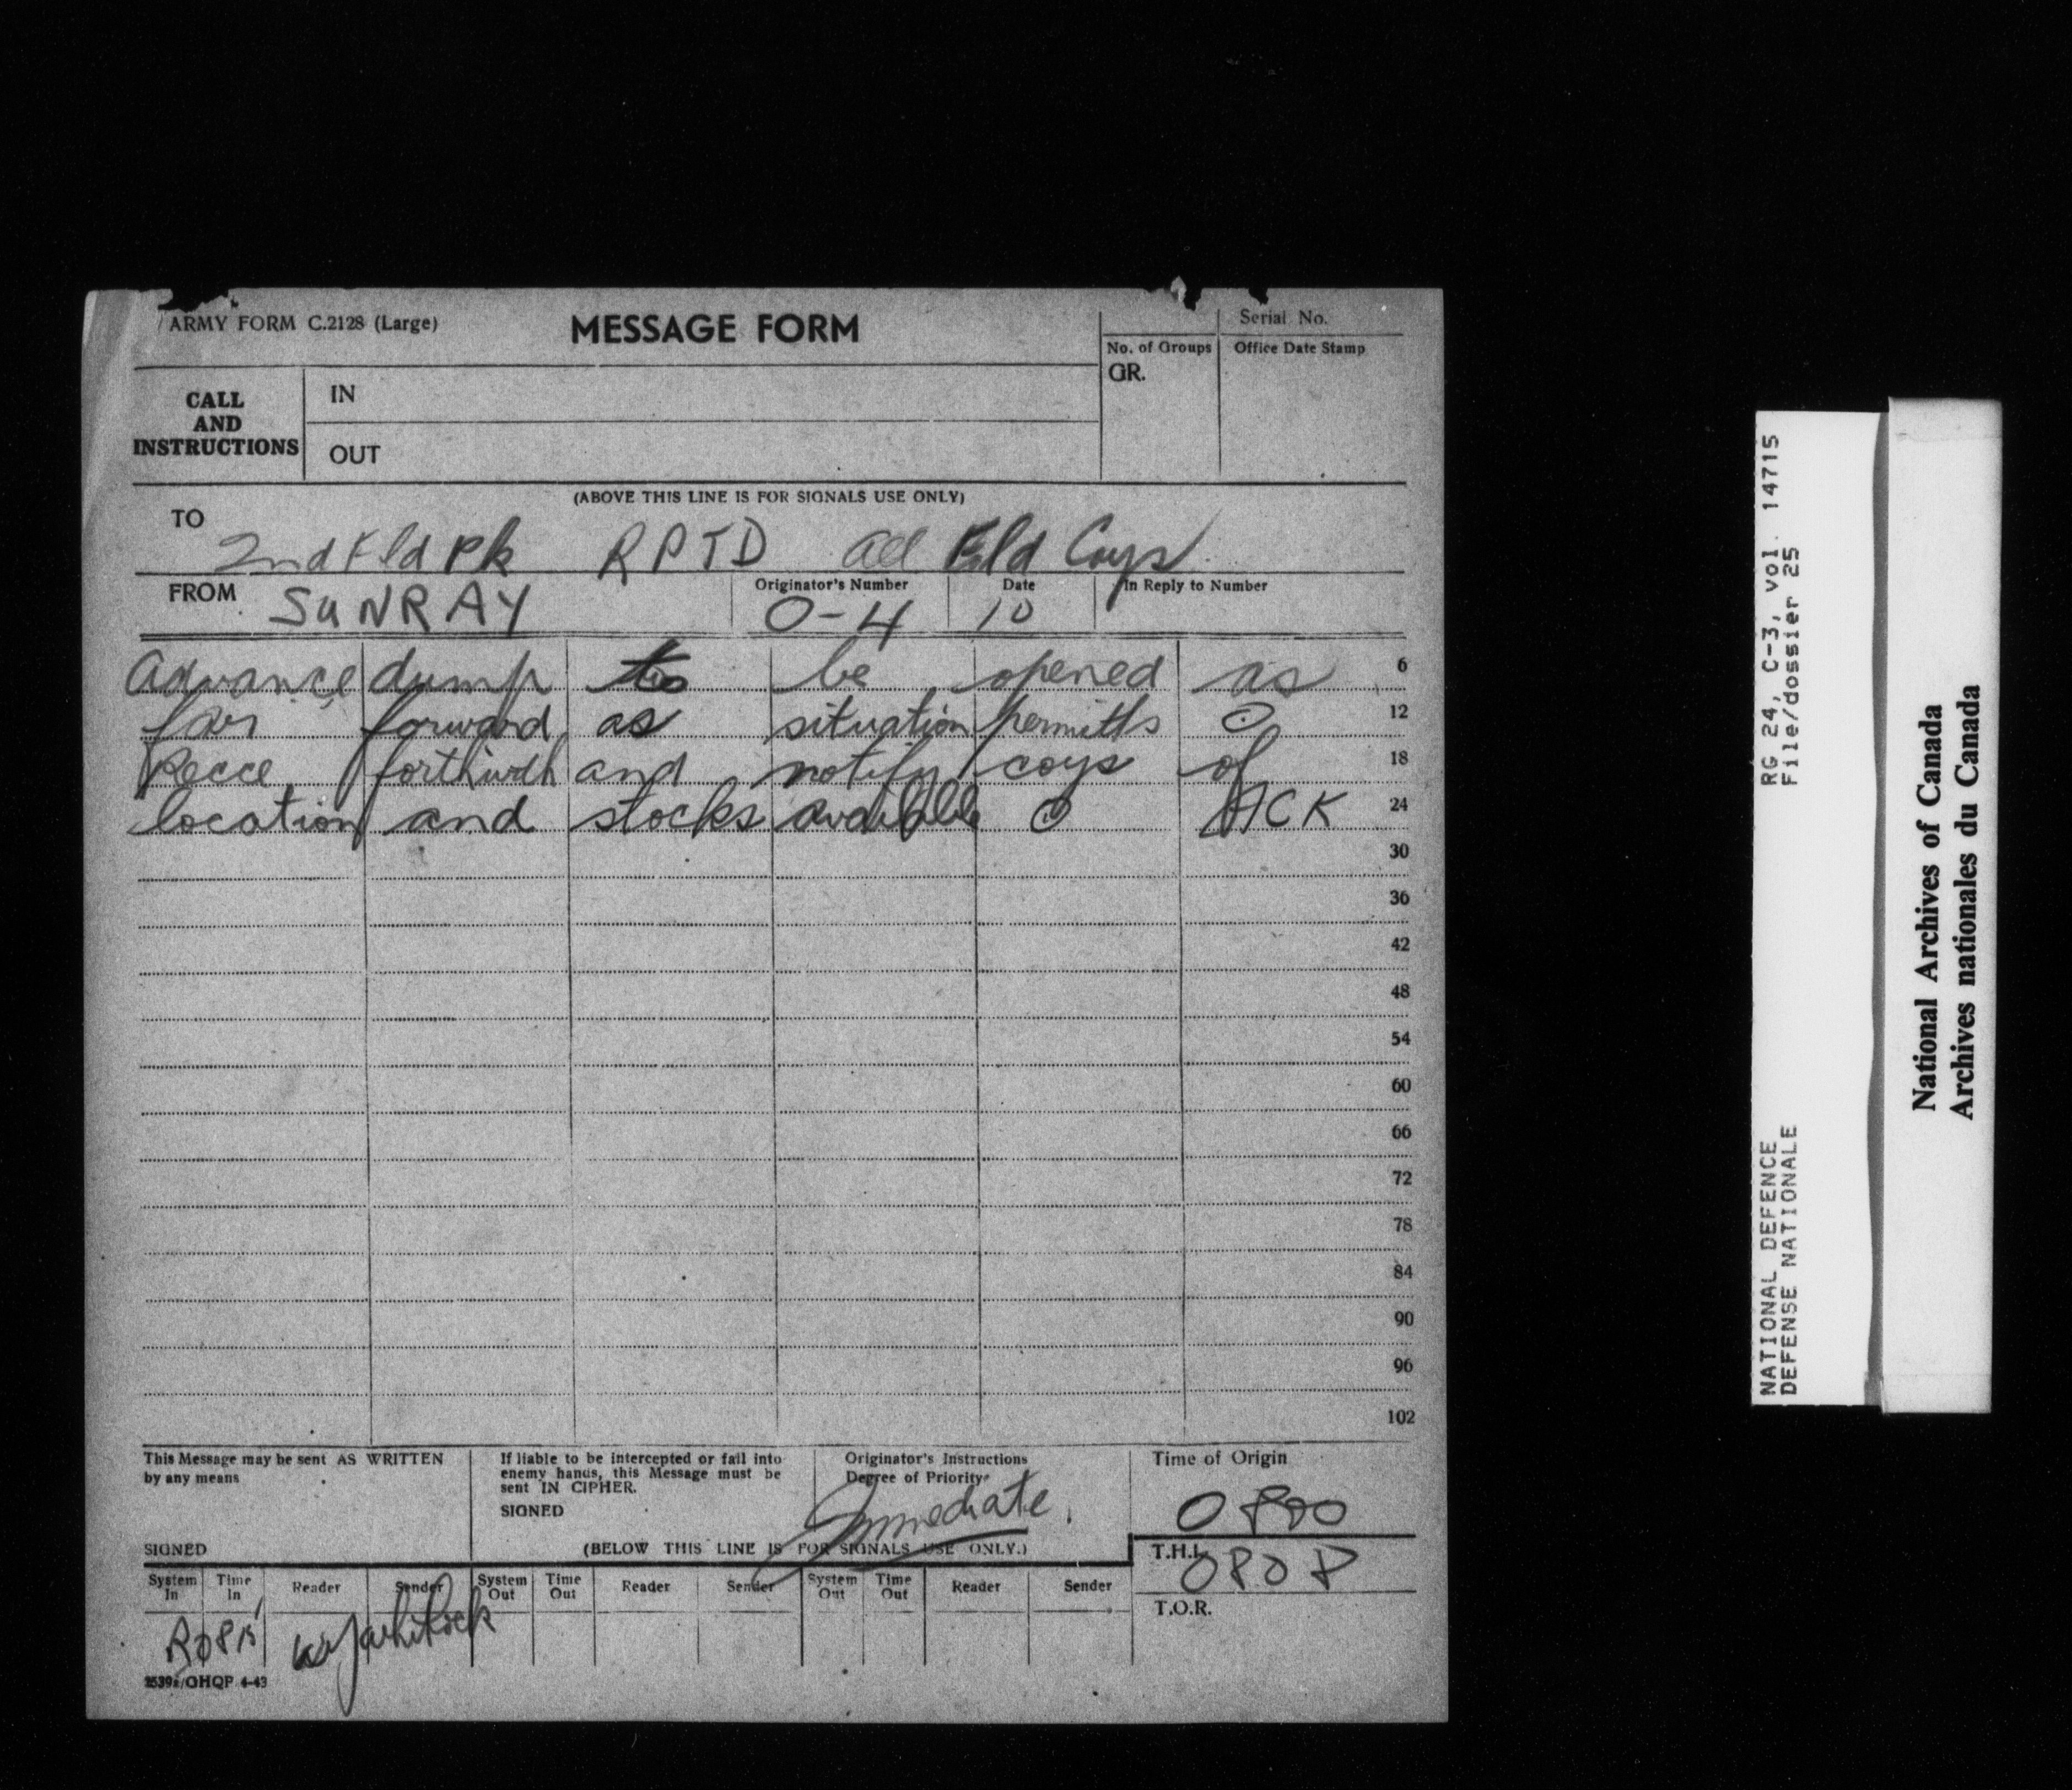 ARMY FORM C.2128 (Large)
MESSAGE FORM
Serial No.
No. of Groups
GR.
Office Date Stamp
CALL
AND
INSTRUCTIONS
IN
OUT
(ABOVE THIS LINE IS FOR SIGNALS USE ONLY)
TO
2nd Fld Pk RPTD all Fld Coys
FROM SUNRAY
Originator's Number
0-4
Date
10
In Reply to Number
Advance dump to be opened as 6
far forward as situation permitts ⊙ 12
Recce forthwith and notify coys of 18
location and stocks available ⊙ ACK 24
30
36
42
48
54
60
66
72
78
84
90
96
102
This Message may be sent AS WRITTEN
by any means
SIGNED
If liable to be intercepted or fall into
enemy hands, this Message must be
sent IN CIPHER.
SIGNED
Originator's Instructions
Degree of Priority
Immediate.
Time of Origin
0800
(BELOW THIS LINE IS FOR SIGNALS USE ONLY.)
T.H.I.
0808
T.O.R.
System In Time In Reader Sender System Out Time Out Reader Sender System Out Time Out Reader Sender
R 0815
/GHQP 4-43
RG 24, C-3, vol. 14715
File/dossier 25
NATIONAL DEFENCE
DEFENSE NATIONALE
National Archives of Canada
Archives nationales du Canada